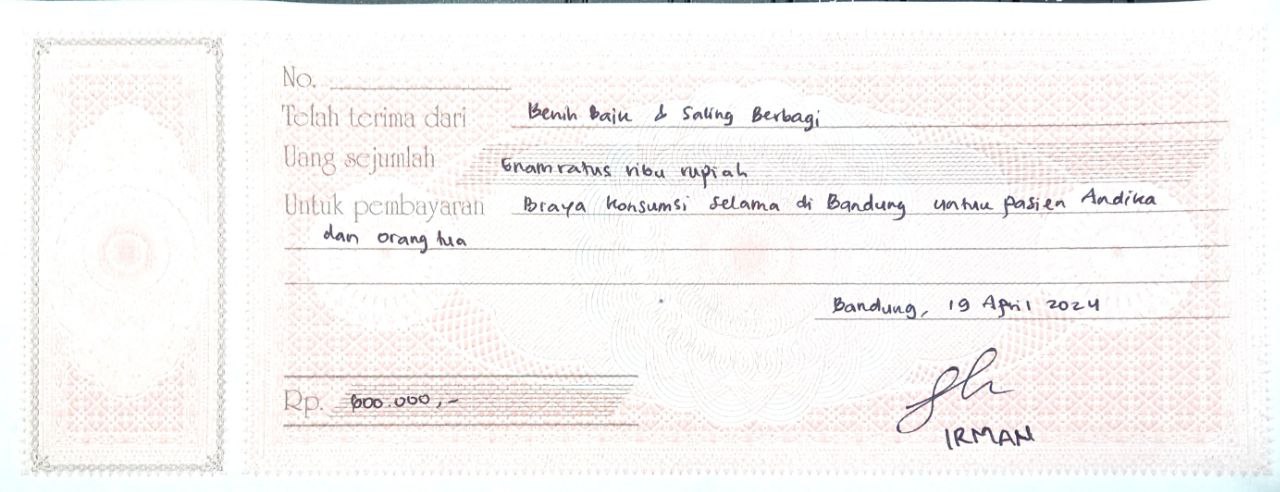 No.
Telah terima dari Benih Baik & Saling Berbagi
Uang sejumlah Enamratus ribu rupiah
Untuk pembayaran Biaya konsumsi selama di Bandung untuk pasien Andika
dan orang tua
Bandung, 19 April 2024
Rp. 600.000,-
IRMAN